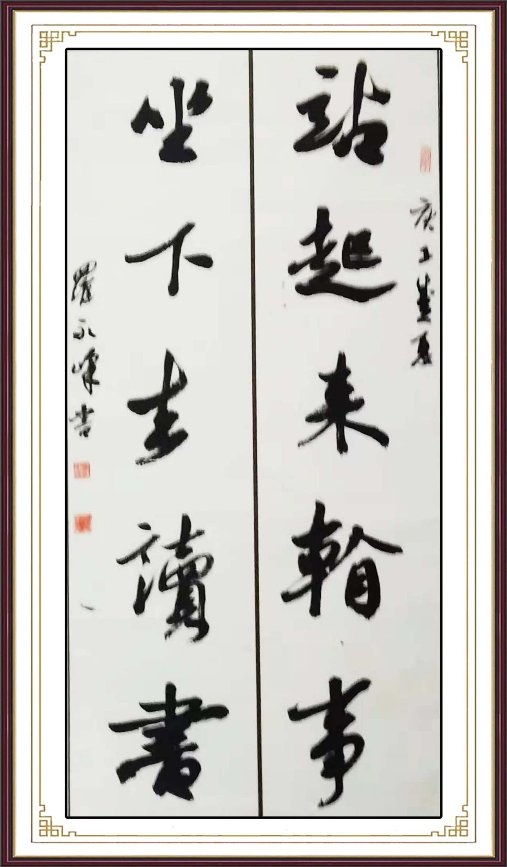 庚子盛夏
站起来事
坐下去讀書
羅永書